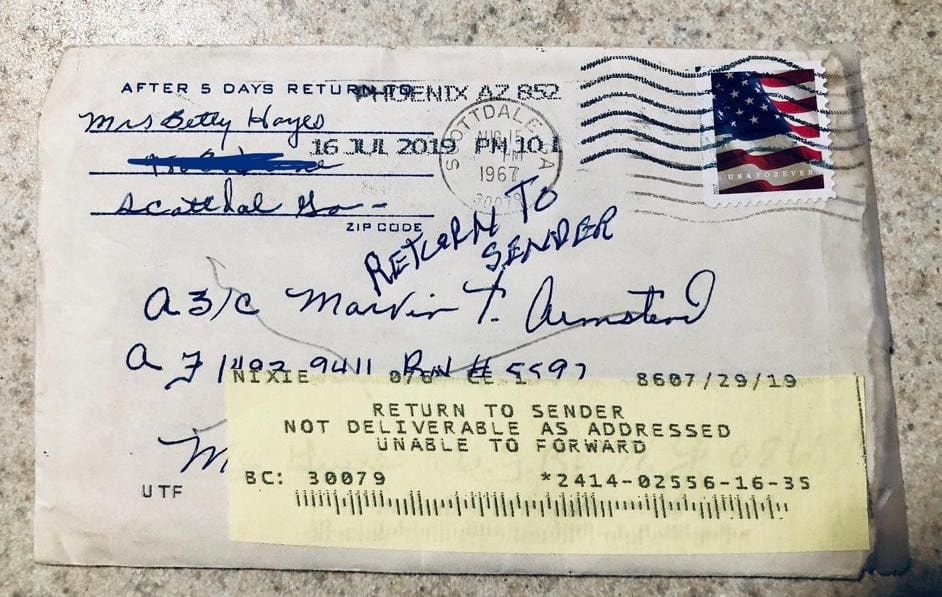 AFTER 5 DAYS RETURN TO
PHOENIX AZ 852
Mrs Betty Hayes
16 JUL 2019 PM 10 L
SCOTTDALE
AUG 15
PM
1967
30079
USA FOREVER
Scottdal Ga -
ZIP CODE
RETURN TO
SENDER
A3/C Marvin T. Armstead
AF 1492 9411 Box # 5597
NIXIE
CE 1
8607/29/19
RETURN TO SENDER
NOT DELIVERABLE AS ADDRESSED
UNABLE TO FORWARD
M
UTF
BC: 30079
*2414-02556-16-35